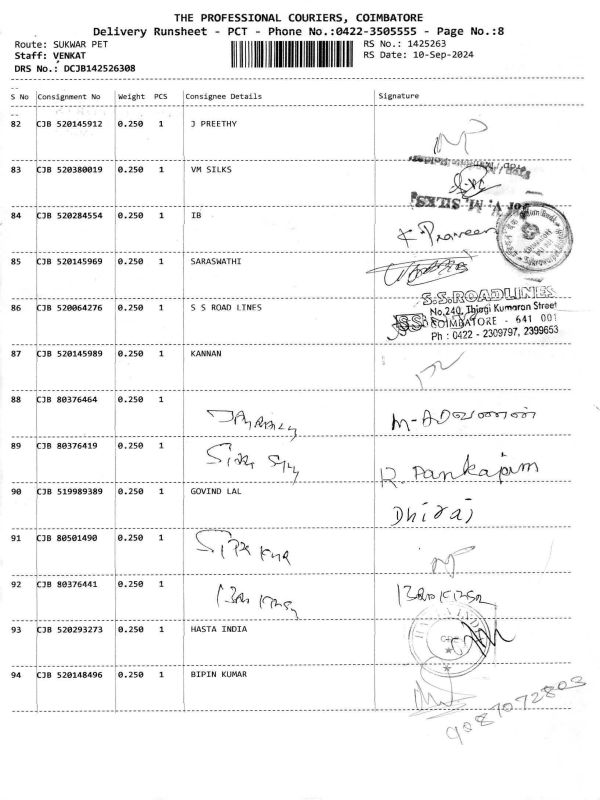 THE PROFESSIONAL COURIERS, COIMBATORE
Delivery Runsheet - PCT - Phone No.:0422-3505555 - Page No.:8
Route: SUKWAR PET RS No.: 1425263
Staff: VENKAT RS Date: 10-Sep-2024
DRS No.: DCJB142526308
S No Consignment No Weight PCS Consignee Details Signature
82 CJB 520145912 0.250 1 J PREETHY
83 CJB 520380019 0.250 1 VM SILKS
For V. M. SILKS,
84 CJB 520284554 0.250 1 IB
K Praveen
85 CJB 520145969 0.250 1 SARASWATHI
86 CJB 520064276 0.250 1 S S ROAD LINES
S.S.ROADLINES
No.240, Thiagi Kumaran Street
COIMBATORE - 641 001
Ph : 0422 - 2309797, 2399653
87 CJB 520145989 0.250 1 KANNAN
88 CJB 80376464 0.250 1
89 CJB 80376419 0.250 1
R. Pankajam
90 CJB 519989389 0.250 1 GOVIND LAL
Dhiraj
91 CJB 80501490 0.250 1
92 CJB 80376441 0.250 1
93 CJB 520293273 0.250 1 HASTA INDIA
94 CJB 520148496 0.250 1 BIPIN KUMAR
9087072803